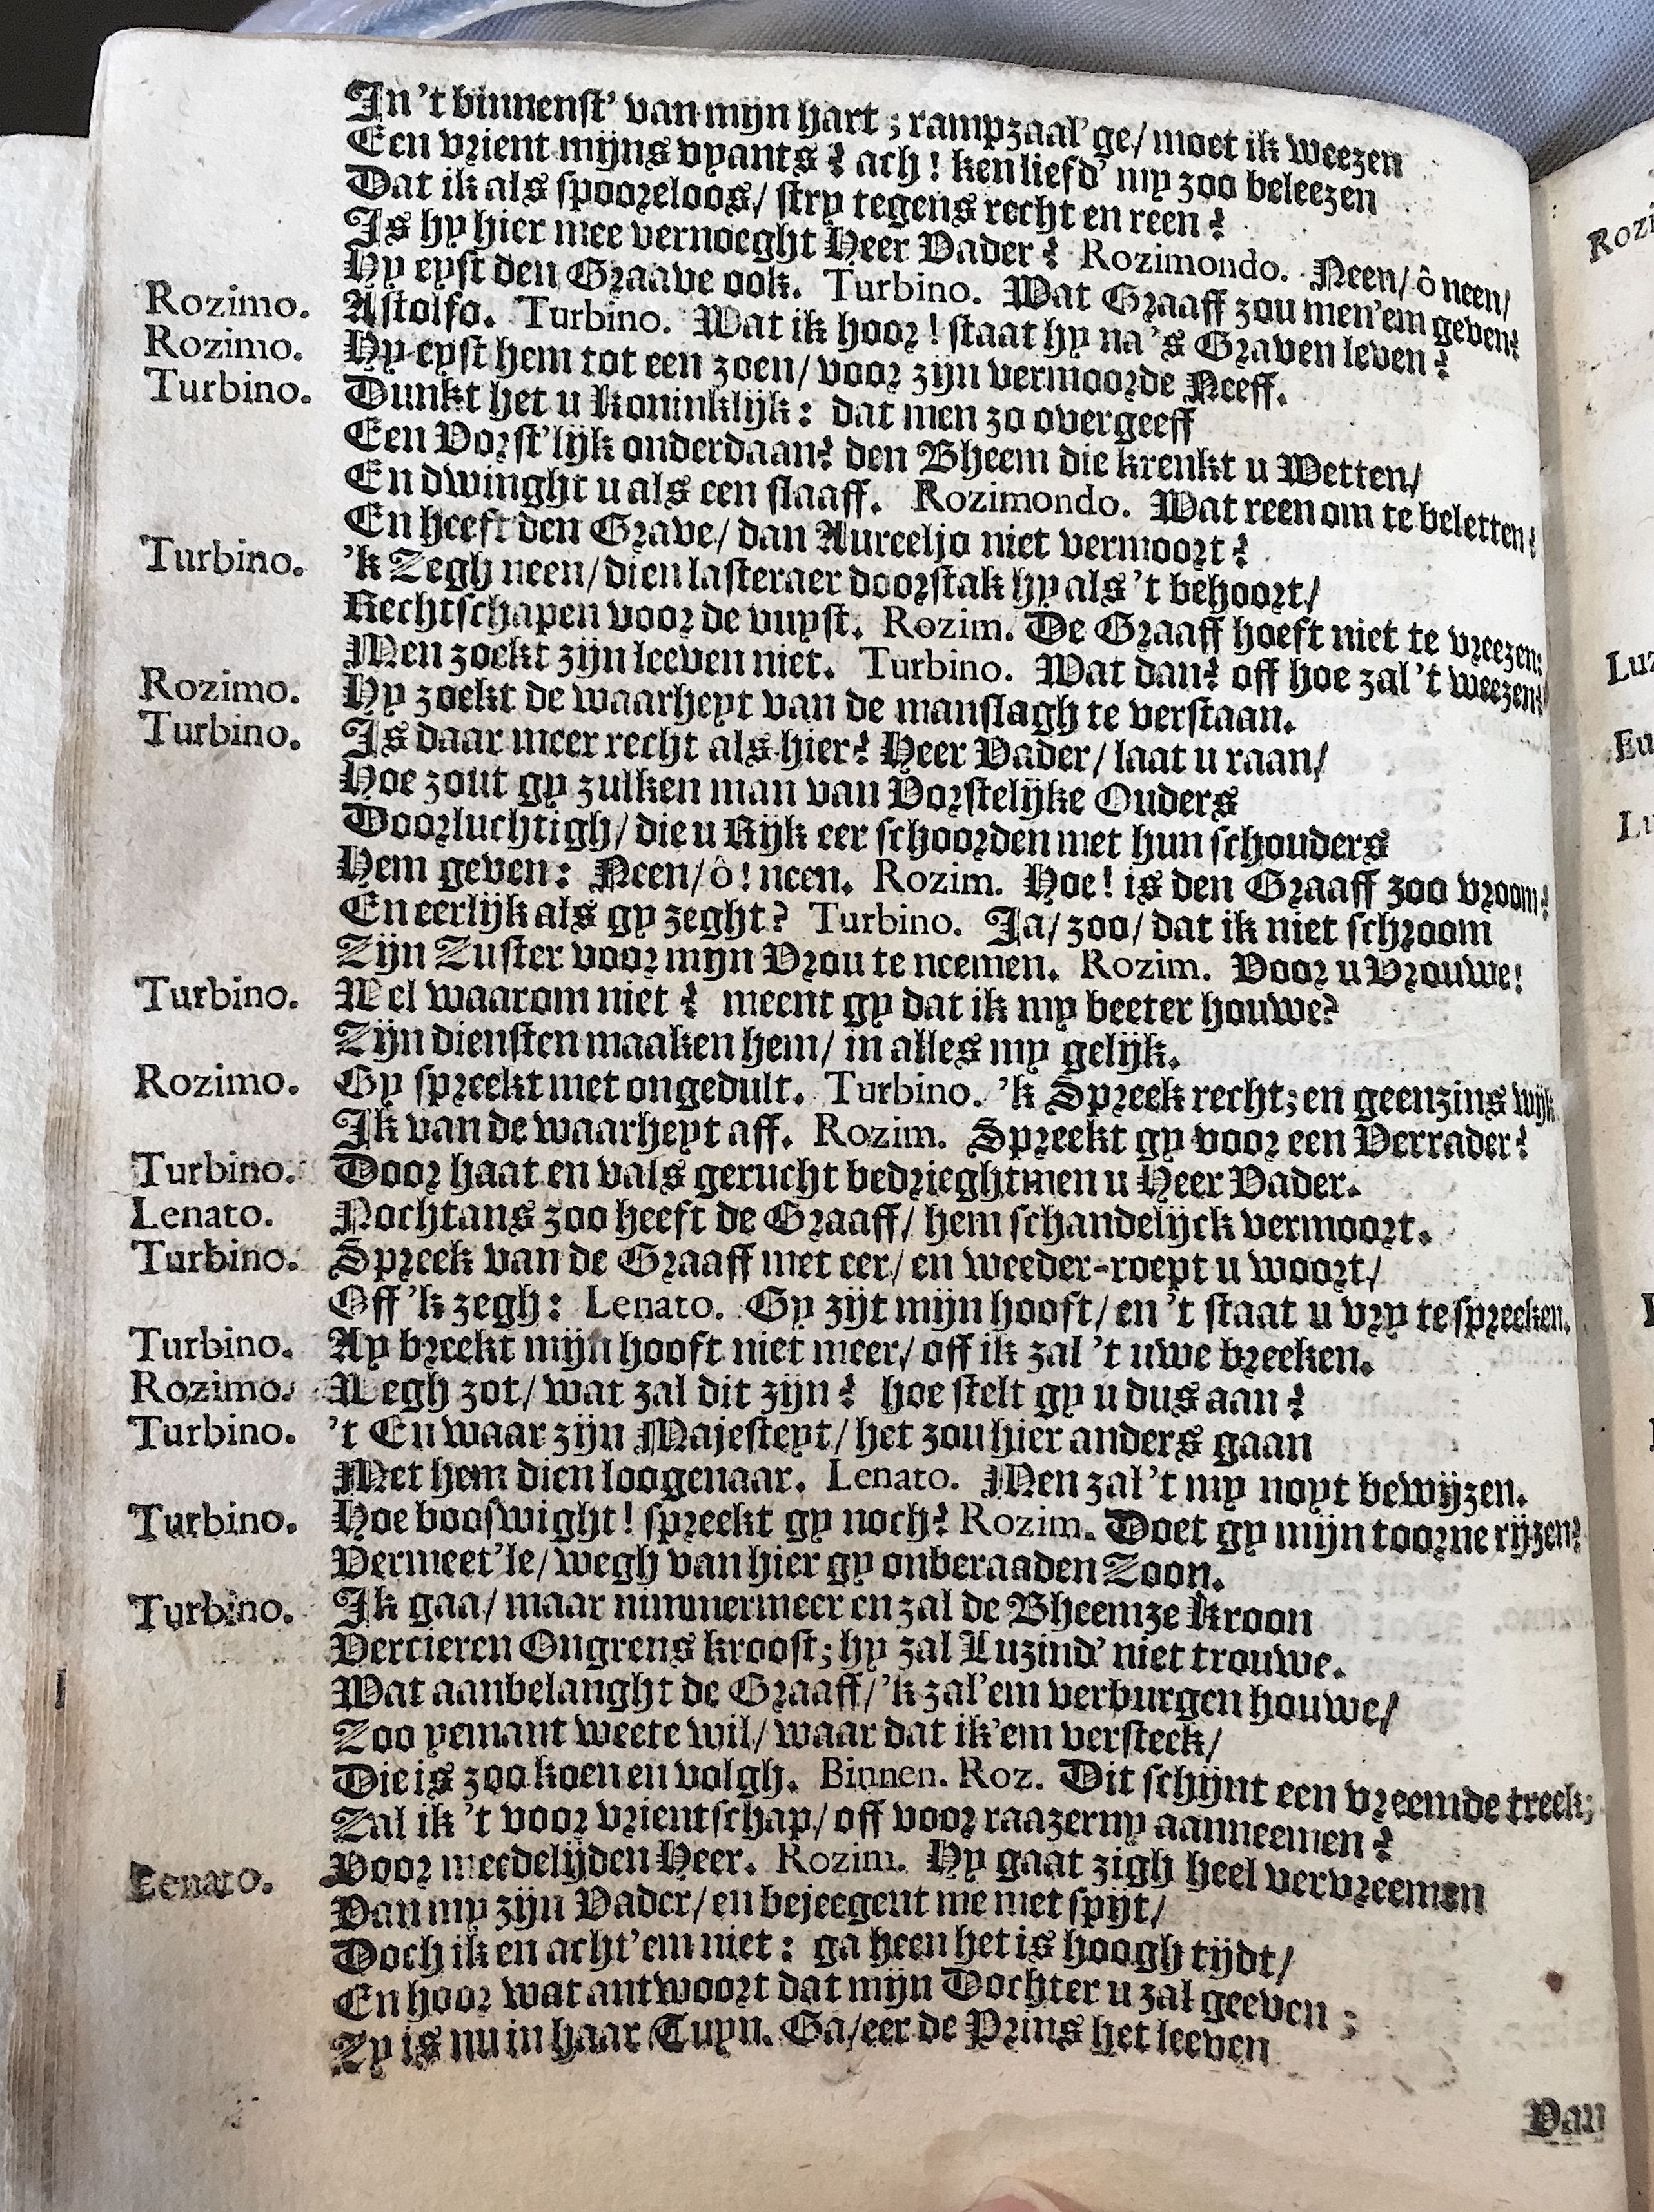 In 't binnenst' van mijn hart; rampzaal'ge/ moet ik weezen
Een vrient mijns vyants? ach! ken liefd' my zoo beleezen
Dat ik als spooreloos/ stry tegens recht en reen?
Is hy hier mee vernoeght Heer Vader? Rozimondo. Neen/ ô neen/
Hy eyst den Graave ook. Turbino. Wat Graaff zou men'em geven?
Rozimo. Astolfo. Turbino. Wat ik hoor! staat hy na 's Graven leven?
Rozimo. Hy eyst hem tot een zoen/ voor zijn vermoorde Neeff.
Turbino. Dunkt het u Koninklijk: dat men zo overgeeff
Een Vorst'lijk onderdaan? den Bheem die krenkt u Wetten/
En dwinght u als een slaaff. Rozimondo. Wat reen om te beletten?
En heeft den Grave/ dan Aureeljo niet vermoort?
Turbino. 'k Zegh neen/ dien lasteraer doorstak hy als 't behoort/
Rechtschapen voor de vuyst. Rozim. De Graaff hoeft niet te vreezen:
Men zoekt zijn leeven niet. Turbino. Wat dan? off hoe zal 't weezen?
Rozimo. Hy zoekt de waarheyt van de manslagh te verstaan.
Turbino. Is daar meer recht als hier? Heer Vader/ laat u raan/
Hoe zout gy zulken man van Vorstelijke Ouders
Doorluchtigh/ die u Rijk eer schoorden met hun schouders
Hem geven: Neen/ ô! neen. Rozim. Hoe! is den Graaff zoo vroom?
En eerlijk als gy zeght? Turbino. Ja/ zoo/ dat ik niet schroom
Zijn Zuster voor mijn Vrou te neemen. Rozim. Voor u Vrouwe!
Turbino. Wel waarom niet? meent gy dat ik my beeter houwe?
Zijn diensten maaken hem/ in alles my gelijk.
Rozimo. Gy spreekt met ongedult. Turbino. 'k Spreek recht; en geenzins wijk
Ik van de waarheyt aff. Rozim. Spreekt gy voor een Verrader?
Turbino. Door haat en vals gerucht bedrieghtmen u Heer Vader.
Lenato. Nochtans zoo heeft de Graaff/ hem schandelijck vermoort.
Turbino. Spreek van de Graaff met eer/ en weeder-roept u woort/
Off 'k zegh: Lenato. Gy zijt mijn hooft/ en 't staat u vry te spreeken.
Turbino. Ay breekt mijn hooft niet meer/ off ik zal 't uwe breeken.
Rozimo. Wegh zot/ wat zal dit zijn? hoe stelt gy u dus aan?
Turbino. 't En waar zijn Majesteyt/ het zou hier anders gaan
Met hem dien loogenaar. Lenato. Men zal 't my noyt bewijzen.
Turbino. Hoe booswight! spreekt gy noch? Rozim. Doet gy mijn toorne rijzen?
Vermeet'le/ wegh van hier gy onberaaden Zoon.
Turbino. Ik gaa/ maar nimmermeer en zal de Bheemze Kroon
Vercieren Ongrens kroost; hy zal Luzind' niet trouwe.
Wat aanbelanght de Graaff/ 'k zal'em verburgen houwe/
Zoo yemant weete wil/ waar dat ik'em versteek/
Die is zoo koen en volgh. Binnen. Roz. Dit schijnt een vreemde treek;
Zal ik 't voor vrientschap/ off voor raazerny aanneemen?
Lenato. Voor meedelijden Heer. Rozim. Hy gaat zigh heel vervreemen
Van my zijn Vader/ en bejeegent me met spijt/
Doch ik en acht'em niet: ga heen het is hoogh tijdt/
En hoor wat antwoort dat mijn Dochter u zal geeven;
Zy is nu in haar Tuyn. Ga/ eer de Prins het leeven
Van
Rozi
Luz
Eu
Lu